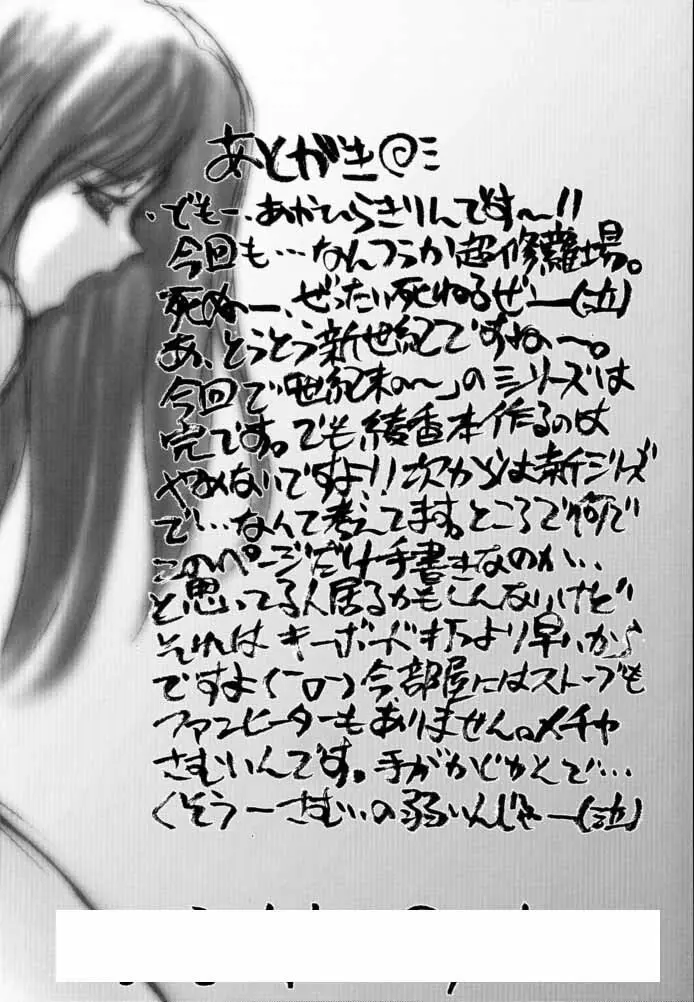 あとがき@ミ
、でもー、あかひらきりんです〜!!
今回も…なんつうか超修羅場。
死ぬー、ぜったい死ねるぜー(泣)
あ、とうとう新世紀ですね〜。
今回で「世紀末の〜」のシリーズは
完です。でも綾香本作るのは
やめないですよ!!次からは新シリーズ
で…なんて考えてます。ところで何で
このページだけ手書きなのか…
と思いてる人居るかもしんないけど
それはキーボード打つより早いから
ですよ(ーロー)今部屋にはストーブも
ファンヒーターもありません。メチャ
さむいんです。手がかじかんで…
くそうーさむいの弱いんじゃー(泣)